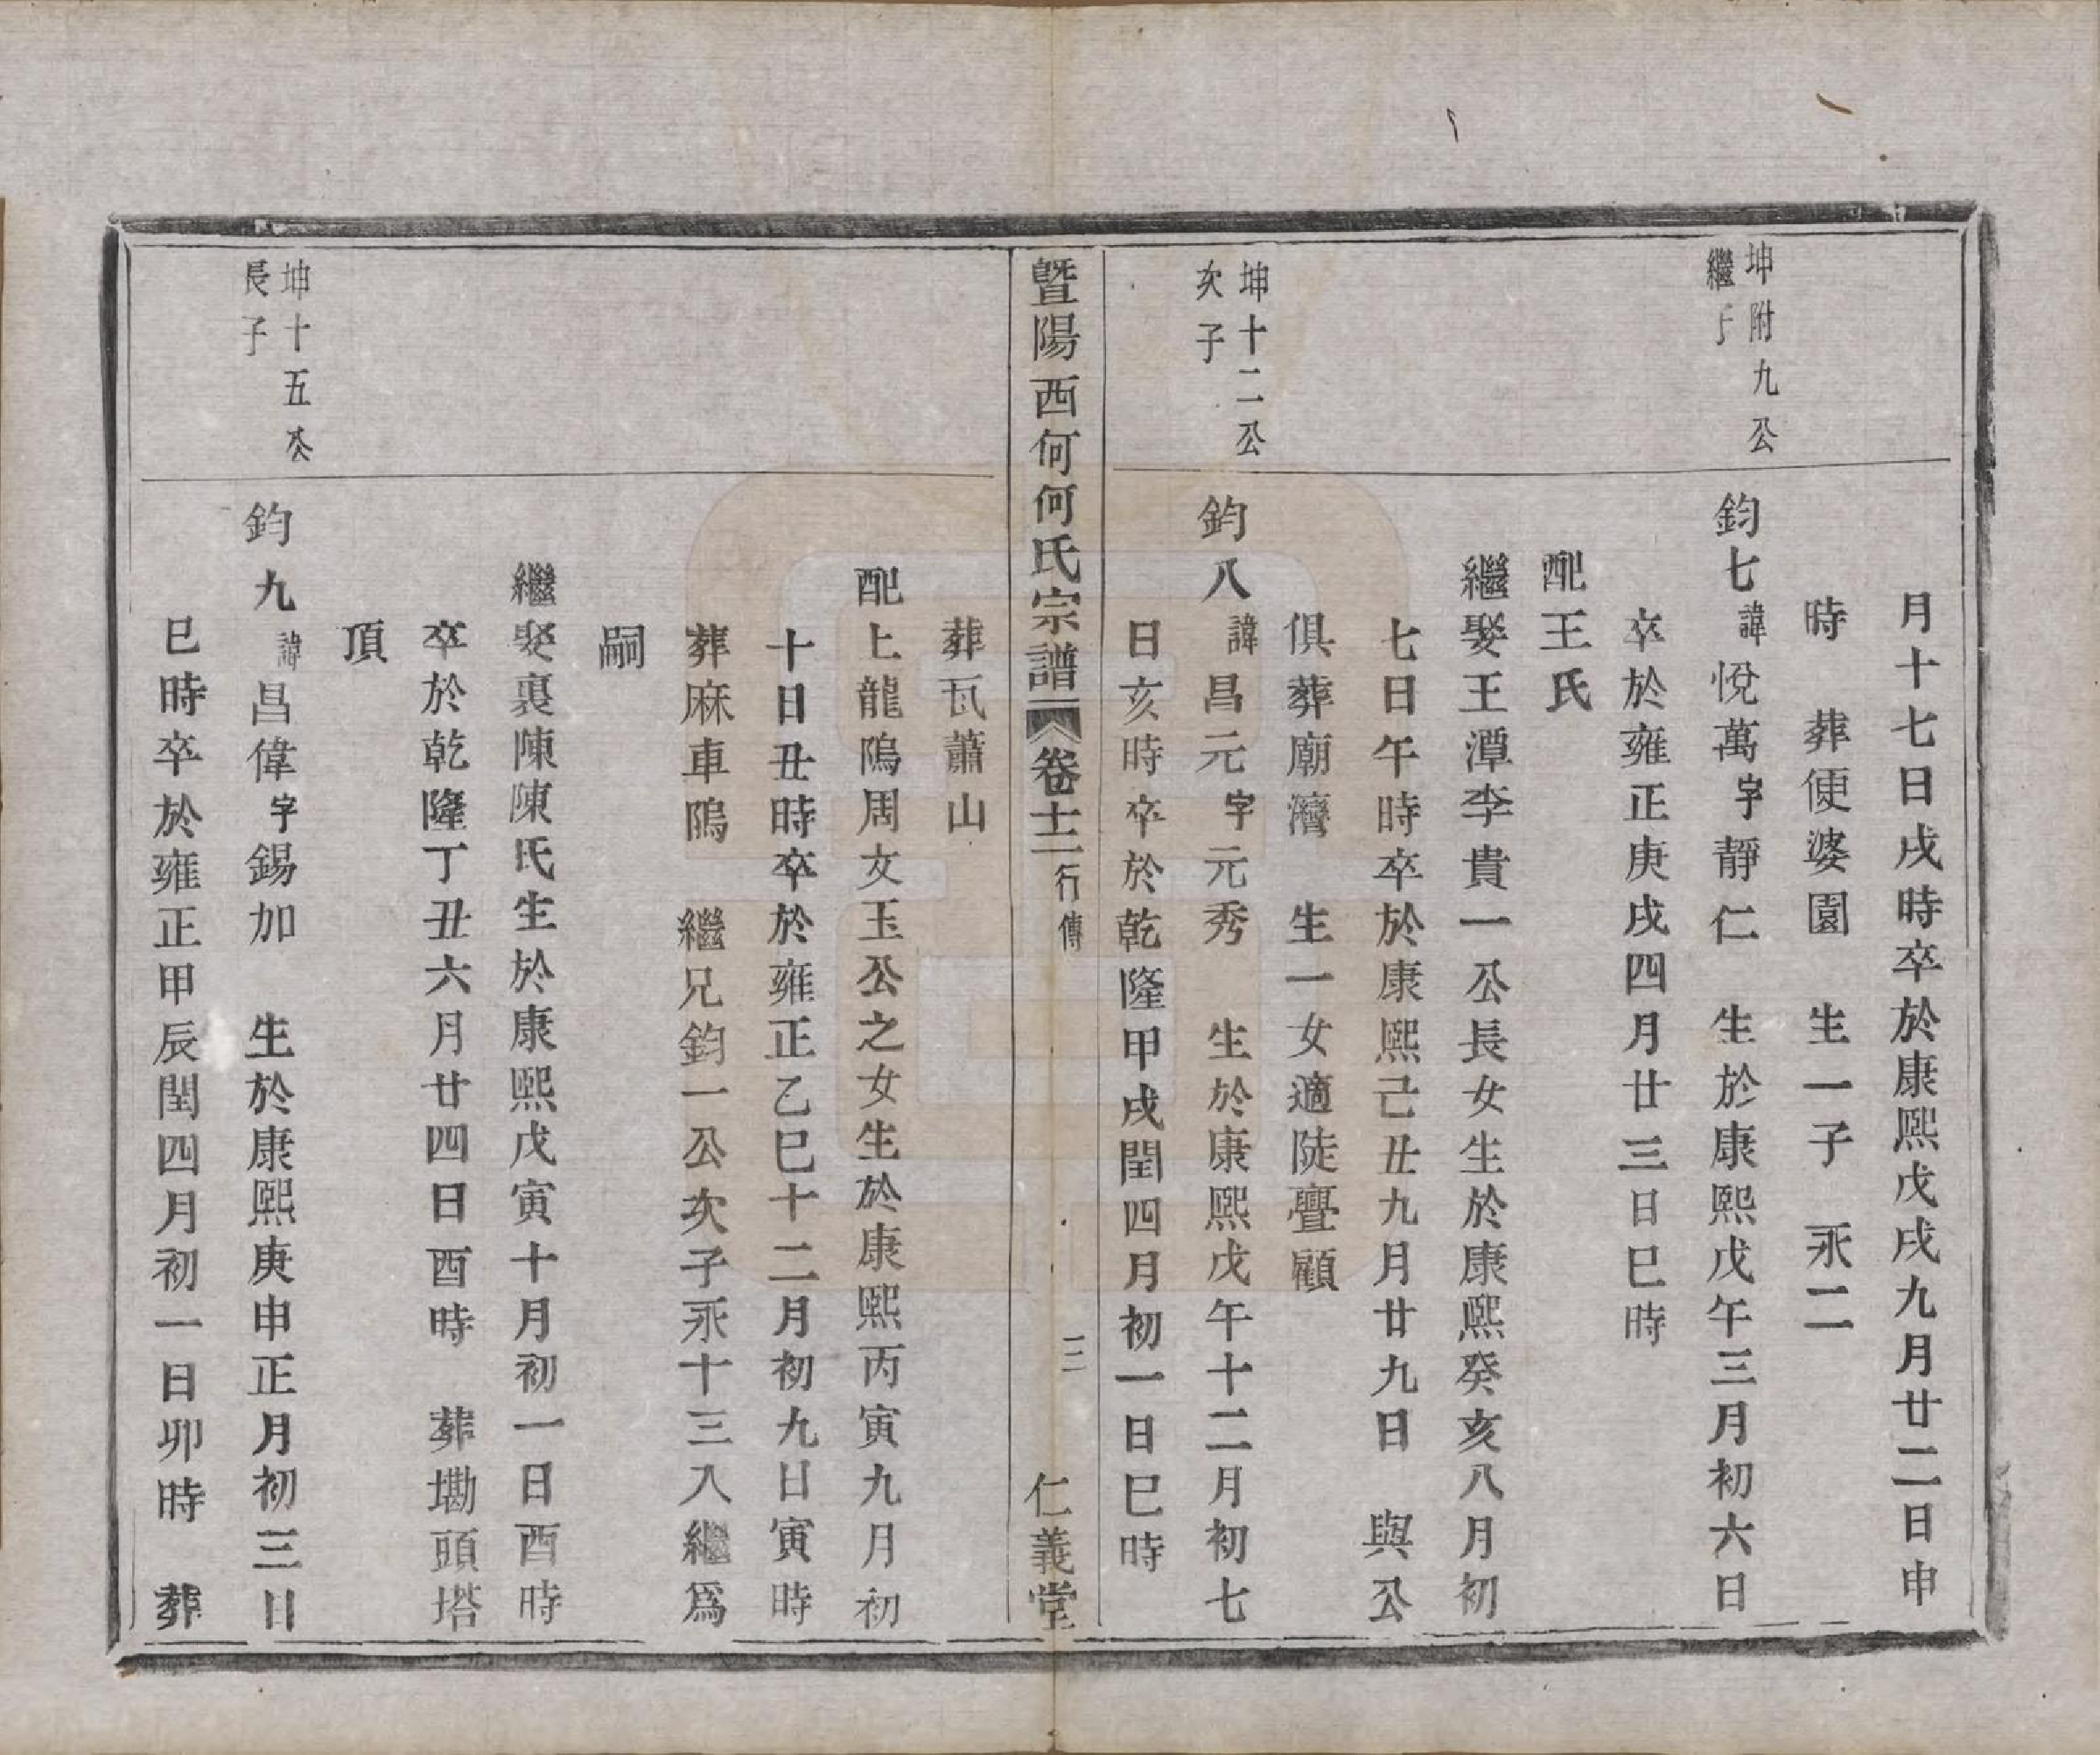 月十七日戌時卒於康熙戊戌九月廿二日申
時　葬便婆園　生一子　永二
坤附九公
繼子
鈞七諱悅萬字靜仁　生於康熙戊午三月初六日
卒於雍正庚戌四月廿三日巳時
配王氏
繼娶王潭李貴一公長女生於康熙癸亥八月初
七日午時卒於康熙己丑九月廿九日　與公
俱葬廟灣　生一女適陡亹顧
坤十二公
次子
鈞八諱昌元字元秀　生於康熙戊午十二月初七
日亥時卒於乾隆甲戌閏四月初一日巳時
暨陽西何何氏宗譜　卷十二　行傳　三　仁義堂
葬瓦蕭山
配上龍隝周文玉公之女生於康熙丙寅九月初
十日丑時卒於雍正乙巳十二月初九日寅時
葬麻車隝　繼兄鈞一公次子永十三入繼爲
嗣
繼娶裏陳陳氏生於康熙戊寅十月初一日酉時
卒於乾隆丁丑六月廿四日酉時　葬墈頭塔
頂
坤十五公
長子
鈞九諱昌偉字錫加　生於康熙庚申正月初三日
巳時卒於雍正甲辰閏四月初一日卯時　葬